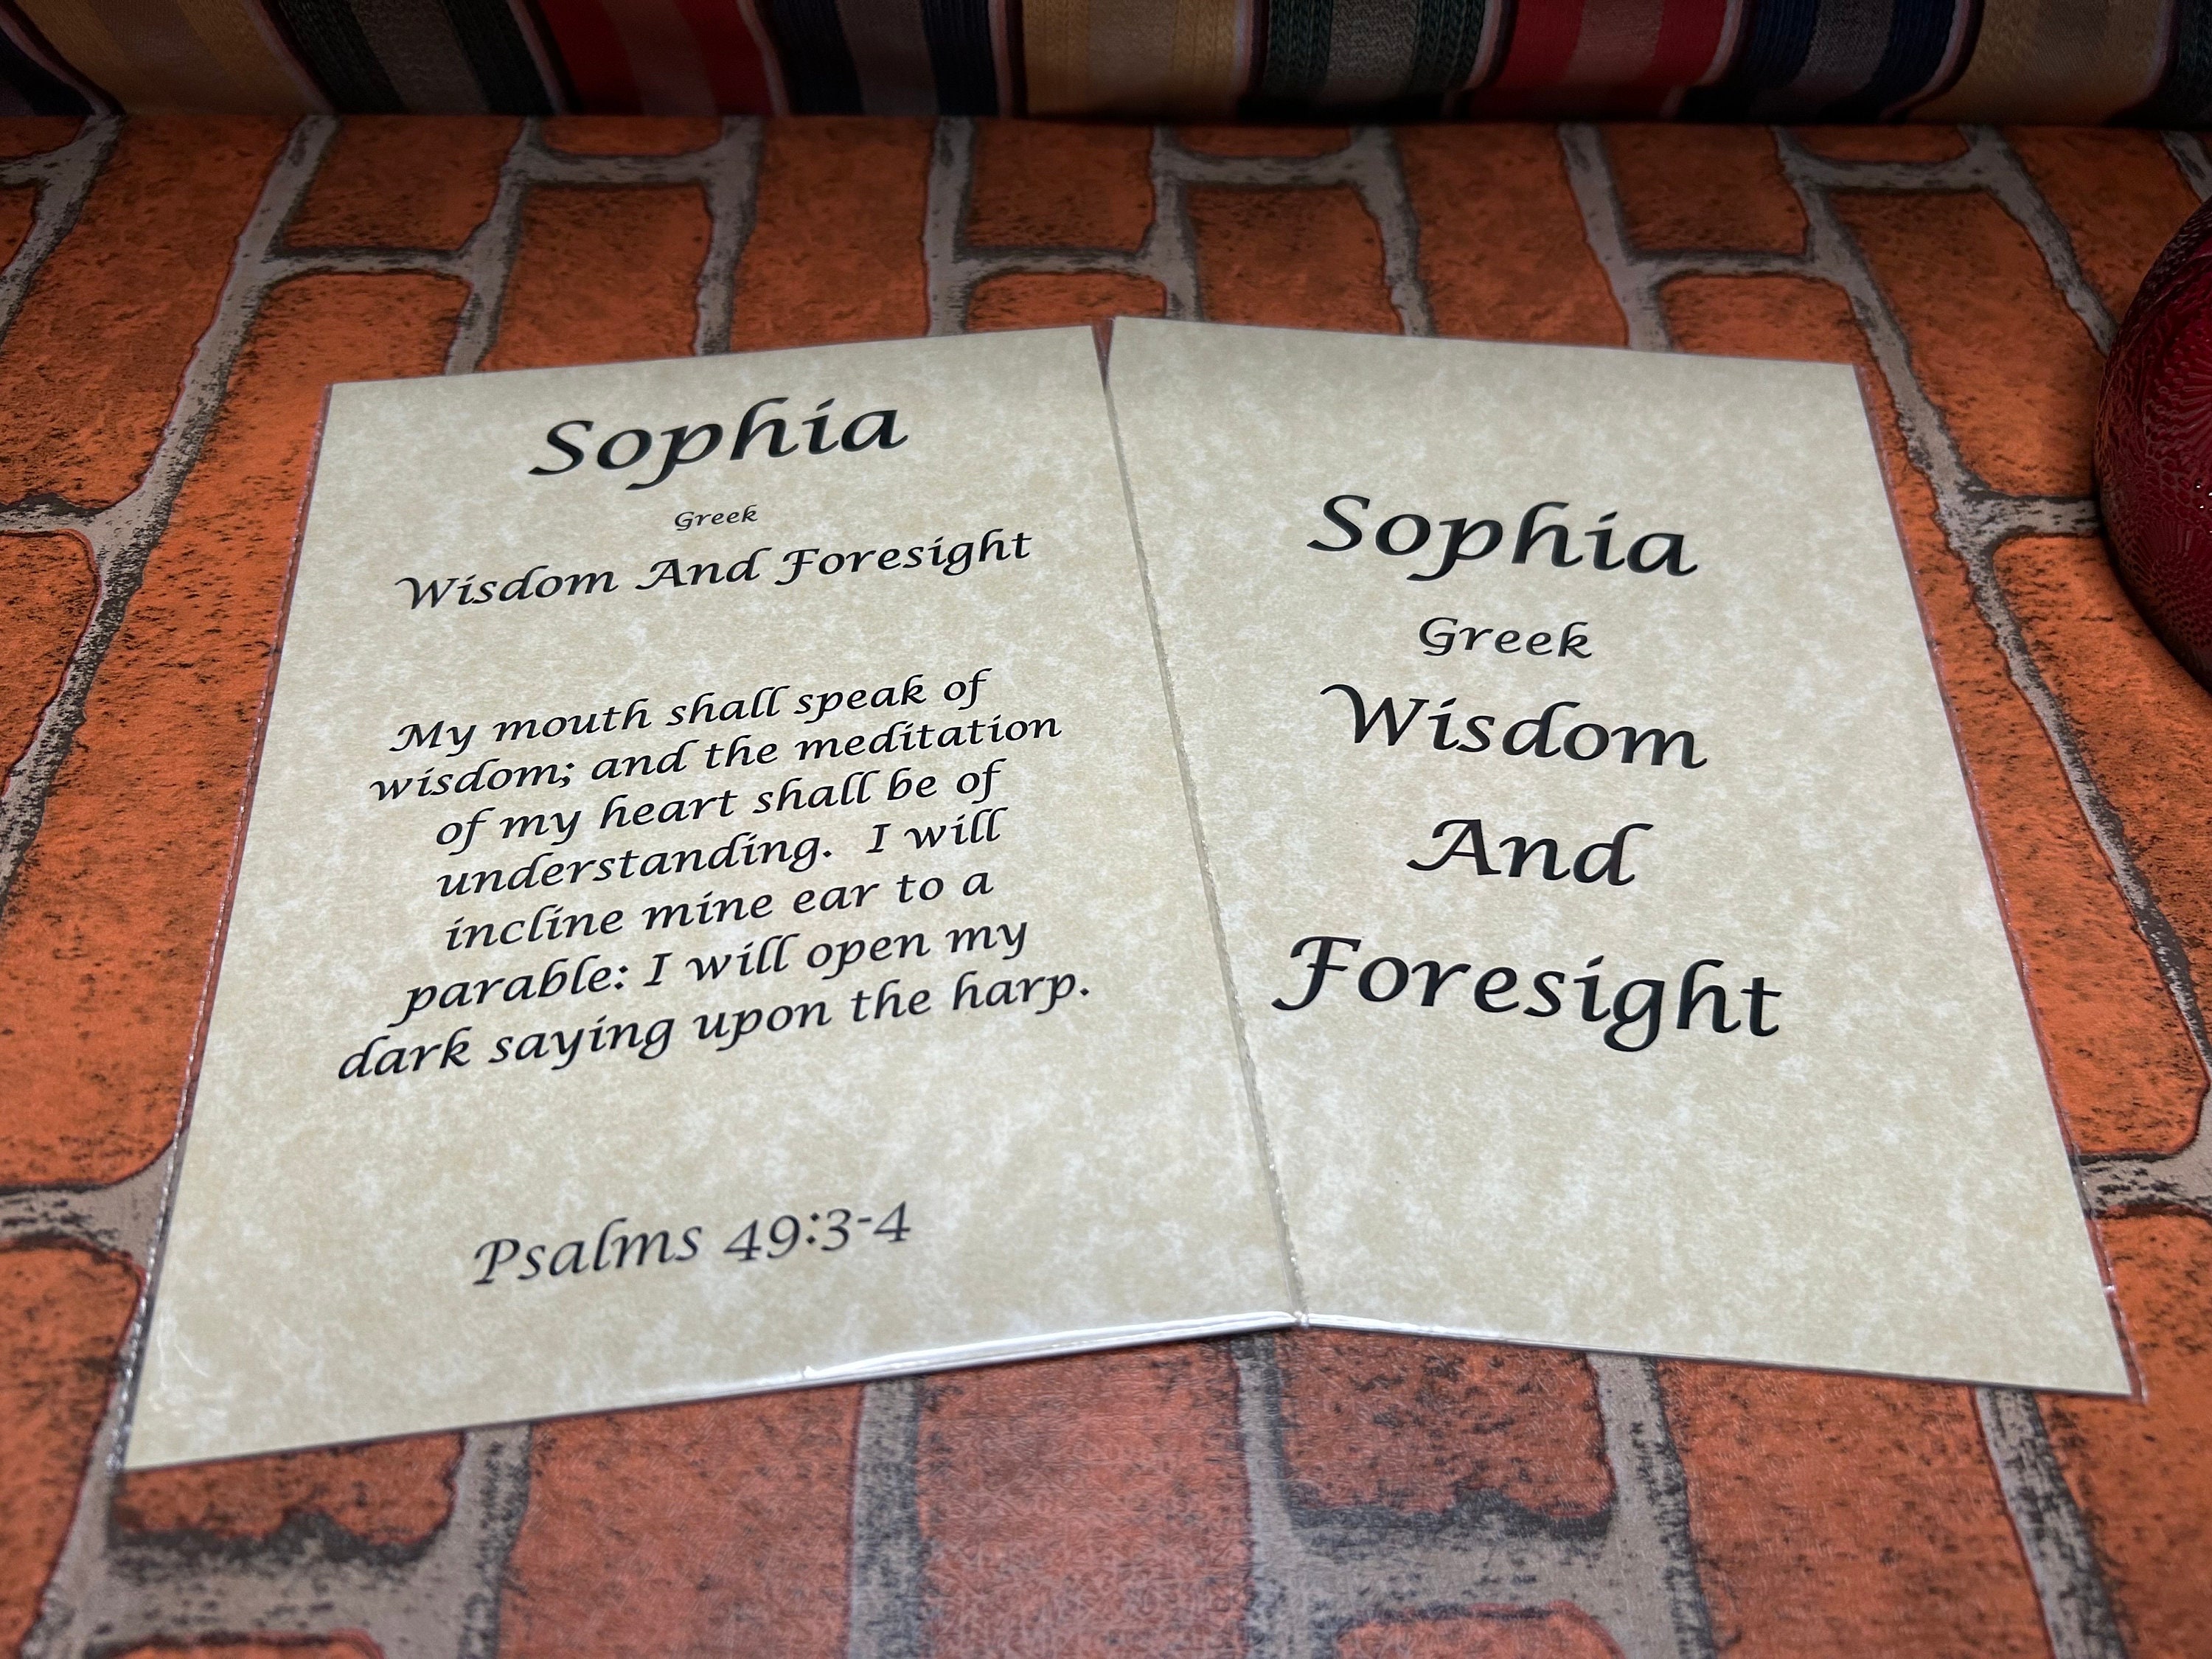 Sophia
Greek
Wisdom And Foresight
My mouth shall speak of
wisdom; and the meditation
of my heart shall be of
understanding. I will
incline mine ear to a
parable: I will open my
dark saying upon the harp.
Psalms 49:3-4
Sophia
Greek
Wisdom
And
Foresight